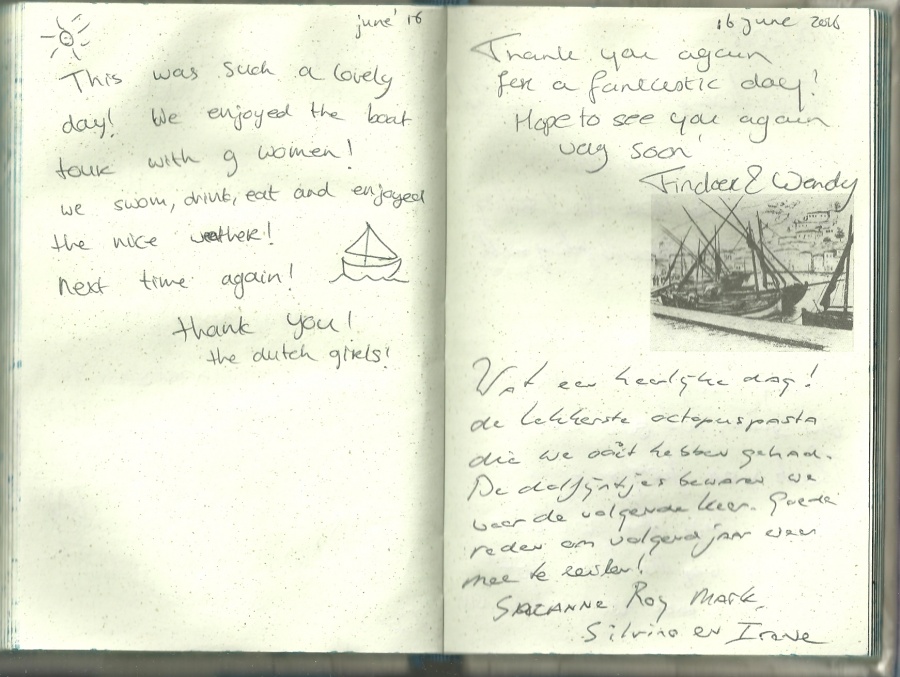 june' 16
This was such a lovely
day! We enjoyed the boat
tour with 9 women!
we swom, drink, eat and enjoyed
the nice weather!
next time again!
thank you!
the dutch girls!
16 june 2016
Thank you again
for a fantastic day!
Hope to see you again
very soon
& Wendy
Wat een heerlijke dag!
de lekkerste octopuspasta
die we ooit hebben gehad.
De dolfijntjes bewaren we
voor de volgende keer. Goede
reden om volgend jaar weer
mee te zeilen!
Suzanne Roy Mark,
Silvino en Irene